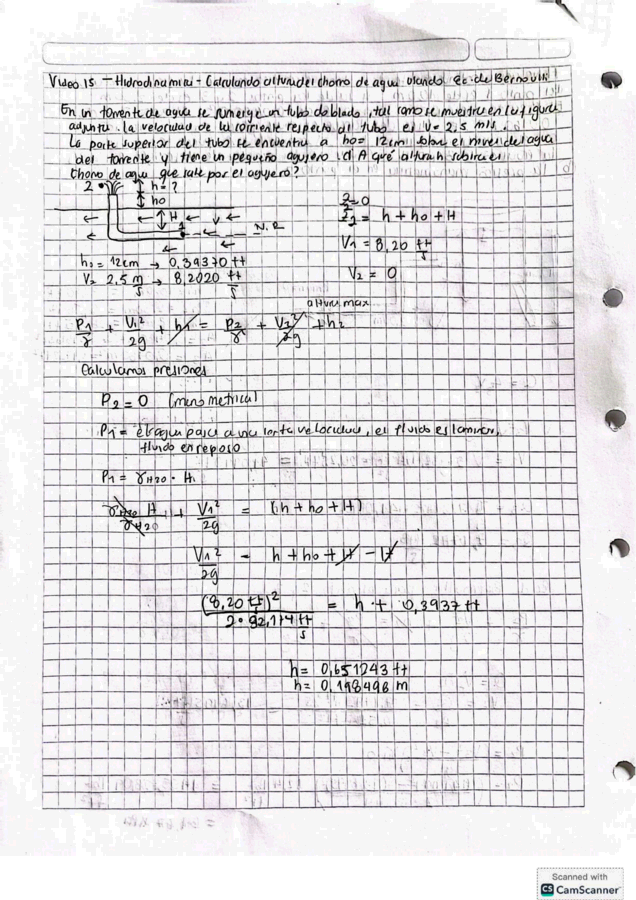 Video 15 - Hidrodinamica - Calculando altura del chorro de agua usando Ec. de Bernoulli
En un torrente de agua se sumerge un tubo doblado, tal como se muestra en la figura
adjunta. La velocidad de la corriente respecto al tubo es v = 2,5 m/s.
La parte superior del tubo se encuentra a ho = 12cm sobre el nivel del agua
del torrente y tiene un pequeño agujero. ¿A qué altura h subira el
chorro de agua que sale por el agujero?
2 h = ?
ho
H v
1 N.R
= 0
= h + ho + H
V1 = 8,20 ft/s
V2 = 0
= 12cm → 0,39370 ft
2,5 m/s → 8,2020 ft/s
altura max
P1/γ + V1²/2g + h1 = P2/γ + V2²/2g + h2
Calculamos presiones
P2 = 0 (manometrica)
P1 = el agua pasa a una cierta velocidad, el fluido es laminar,
fluido en reposo
P1 = γH2O · H
γH2O H/γH2O + V1²/2g = (h + ho + H)
V1²/2g = h + ho + H - H
(8,20 ft)²/2 · 32,174 ft/s = h + 0,3937 ft
h = 0,651243 ft
h = 0,198498 m
Scanned with
CS CamScanner